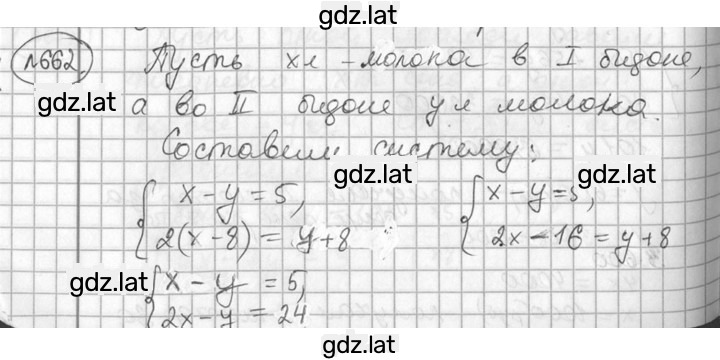 gdz.lat
№662 Пусть x л - молока в I бидоне,
gdz.lat
а во II бидоне y л молока.
gdz.lat
Составим систему:
gdz.lat gdz.lat
{ x - y = 5, { x - y = 5,
2(x - 8) = y + 8 2x - 16 = y + 8
gdz.lat
{ x - y = 5,
2x - y = 24
gdz.lat